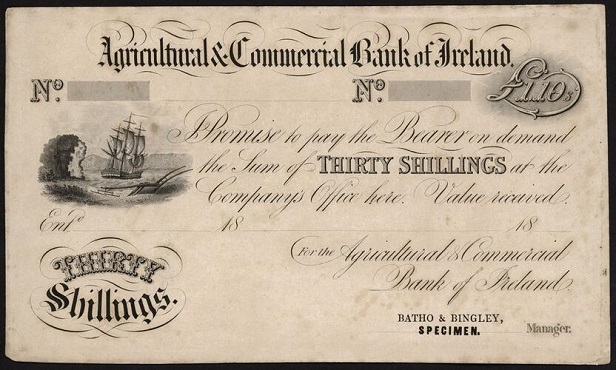 Agricultural & Commercial Bank of Ireland.
No. No. £1.,,10s
I Promise to pay the Bearer on demand
the Sum of THIRTY SHILLINGS at the
Company's Office here. Value received.
Entd. 18 18
For the Agricultural & Commercial
Bank of Ireland.
THIRTY
Shillings.
BATHO & BINGLEY,
SPECIMEN.
Manager.